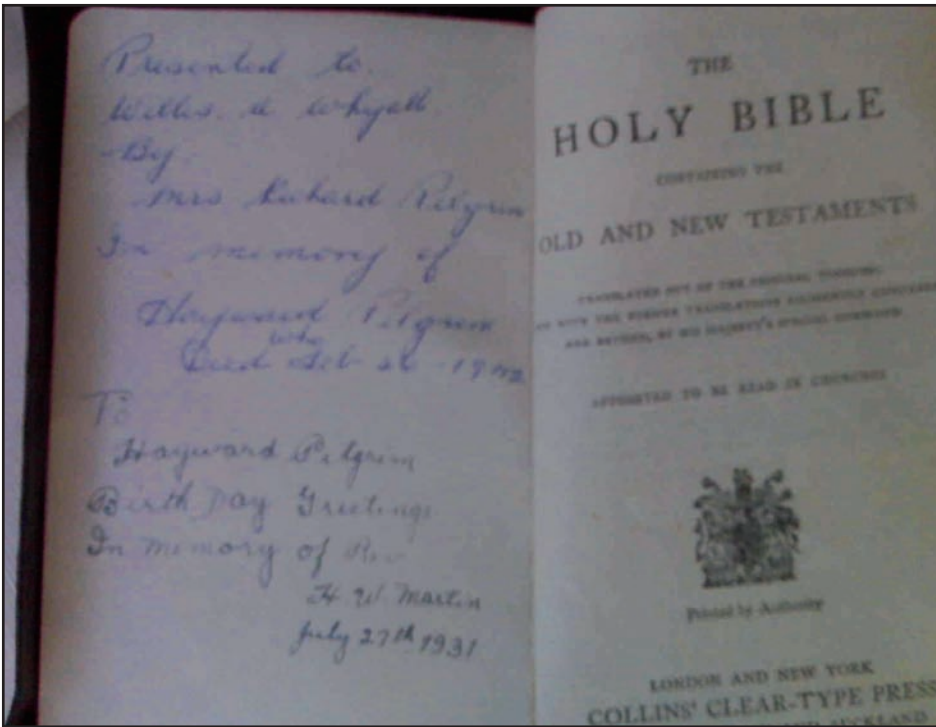 Presented to
Willis. a Whyatt
By
Mrs Richard Pilgrim
In memory of
Hayward Pilgrim
who
Died Feb 26 - 19
To
Hayward Pilgrim
Birth Day Greetings
In Memory of Rev
H. W. Martin
July 27th 1931
THE
HOLY BIBLE
CONTAINING THE
OLD AND NEW TESTAMENTS
TRANSLATED OUT OF THE ORIGINAL TONGUES;
WITH THE FORMER TRANSLATIONS DILIGENTLY COMPARED
AND REVISED, BY HIS MAJESTY'S SPECIAL COMMAND
APPOINTED TO BE READ IN CHURCHES
Printed by Authority
LONDON AND NEW YORK
COLLINS' CLEAR-TYPE PRESS
AUCKLAND